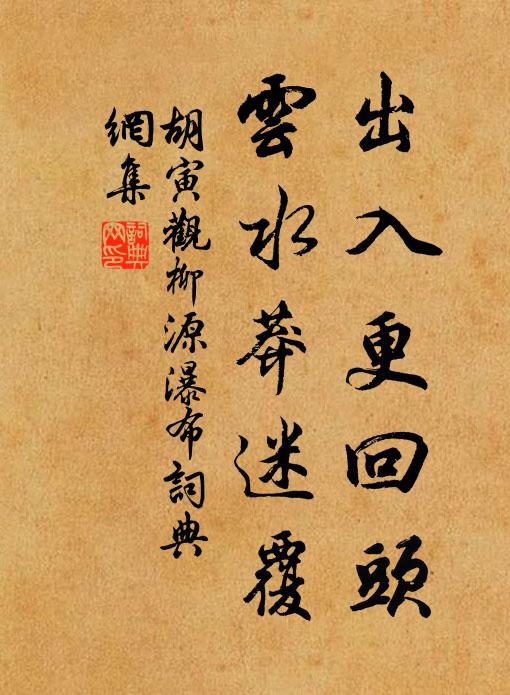 出入更回頭
雲水莽迷覆
胡寅觀柳源瀑布詞典
網集
詞典
网印